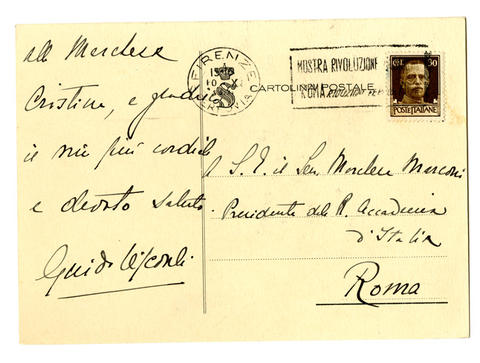 alla Marchesa
Cristina, e gradisca
il mio più cordiale
e devoto saluto.
Guido Visconti
FIRENZE
FERROVIA
MOSTRA RIVOLUZIONE
ROMA
CARTOLINA POSTALE
CENT. 30
POSTE ITALIANE
A S. E. il Sen. Marchese Marconi
Presidente della R. Accademia
d'Italia
Roma